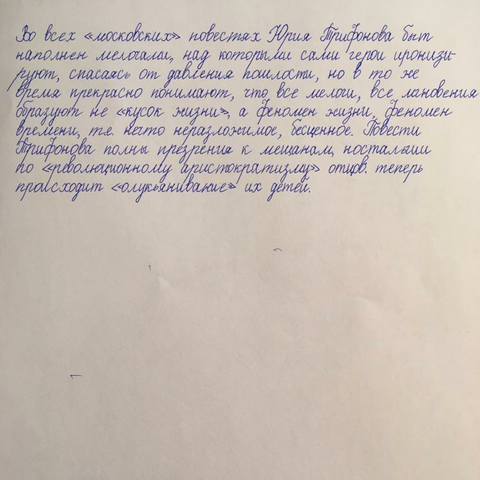 Во всех «московских» повестях Юрия Трифонова быт
наполнен мелочами, над которыми сами герои иронизи-
руют, спасаясь от давления пошлости, но в то же
время прекрасно понимают, что все мелочи, все мгновения
образуют не «кусок жизни», а феномен жизни, феномен
времени, т.е. нечто неразложимое, бесценное. Повести
Трифонова полны презрения к мещанам, ностальгии
по «революционному аристократизму» отцов. теперь
происходит «олукьянивание» их детей.